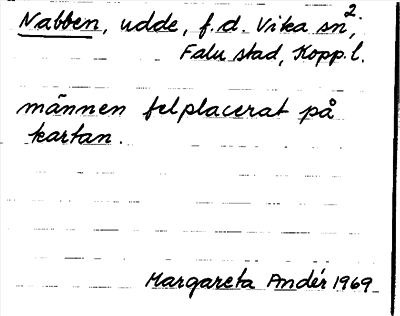 Nabben, udde, f.d. Vika sn²,
Falu stad, Kopp.l.
männen felplacerat på
kartan.
Margareta Andér 1969